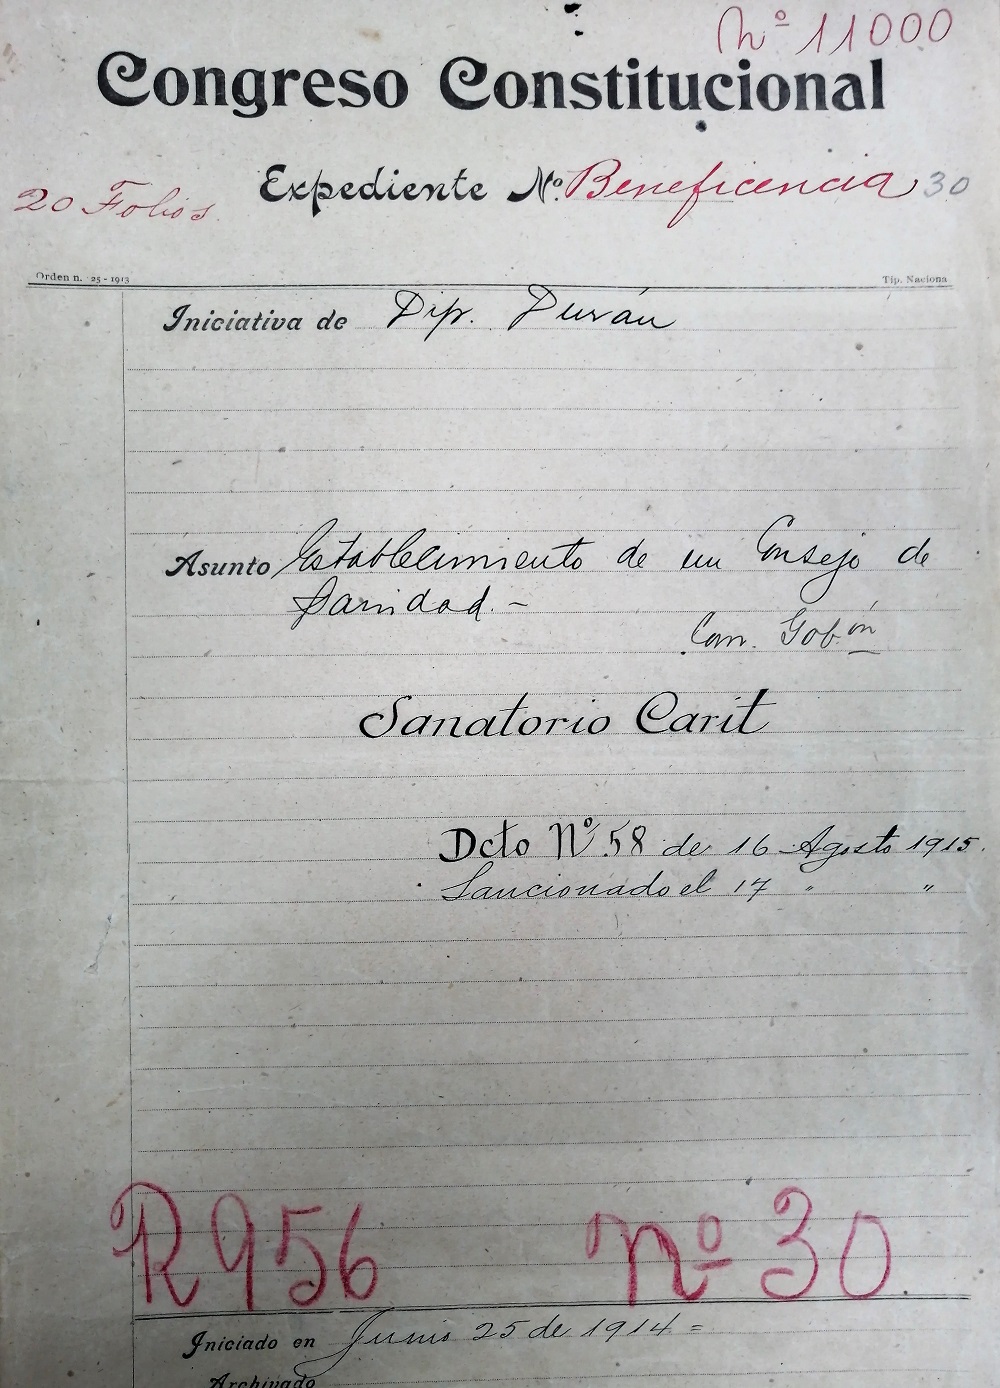 Nº 11000
Congreso Constitucional
20 Folios.
Expediente Nº. Beneficencia 30
Orden n. 25 - 1913
Tip. Naciona
Iniciativa de Dip. Durán
Asunto Establecimiento de un Consejo de
Sanidad. -
Com. Gobón
Sanatorio Carit
Dcto Nº. 58 de 16 Agosto 1915.
Sancionado el 17 " "
R 956 nº 30
Iniciado en Junio 25 de 1914 =
Archivado